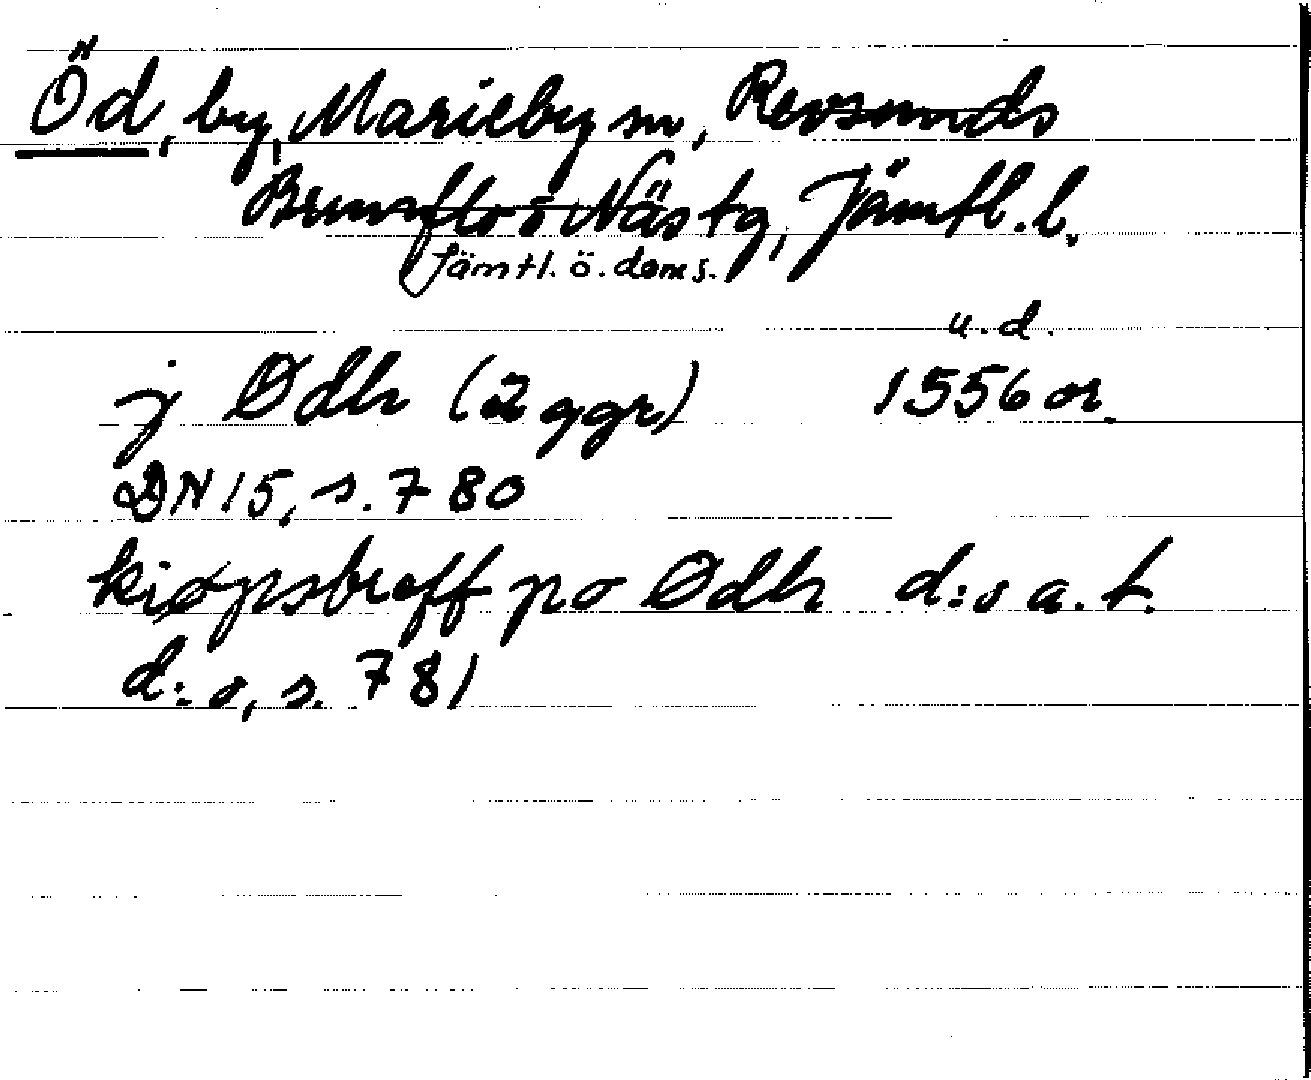 Öd, by, Marieby sn, Revsunds
Brunflo o Näs tg, Jämtl. l.
Jämtl. ö. doms.
u.d.
j Ødh (2 ggr) 1556 or.
DN 15, s. 780
kiøpsbreff po Ødh d:o a. t.
d:o, s. 781